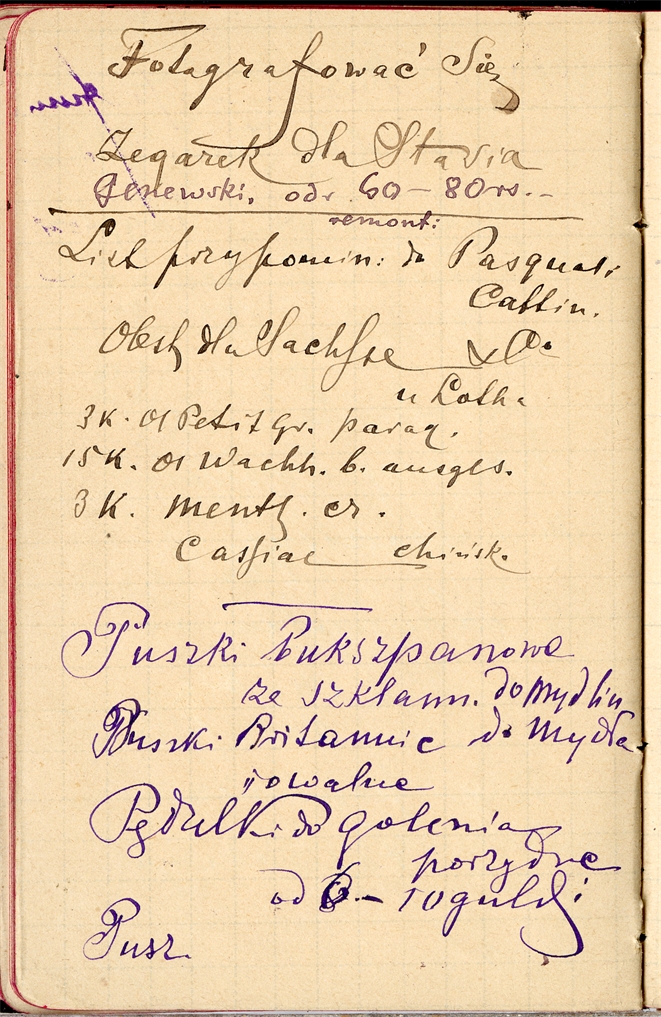 Fotografować Się
Zegarek dla Stasia
Genewski. od 60 – 80 rs. –
remont:
List przypomin: do Pasquali
Cattin.
Obst. dla Sachsse & Co
u Loth.
3 K. Ol Petit Gr. parag.
15 K. Ol Wachh. b. ausges.
3 K. Menth. cr.
Cassiae chińsk.
Puszki Bukszpanowe
ze szkłam. do mydlin
Puszki Britannic do Mydła
i owalne
Pędzelki do golenia
porządne
od 6 – 10 guld
Pusz.